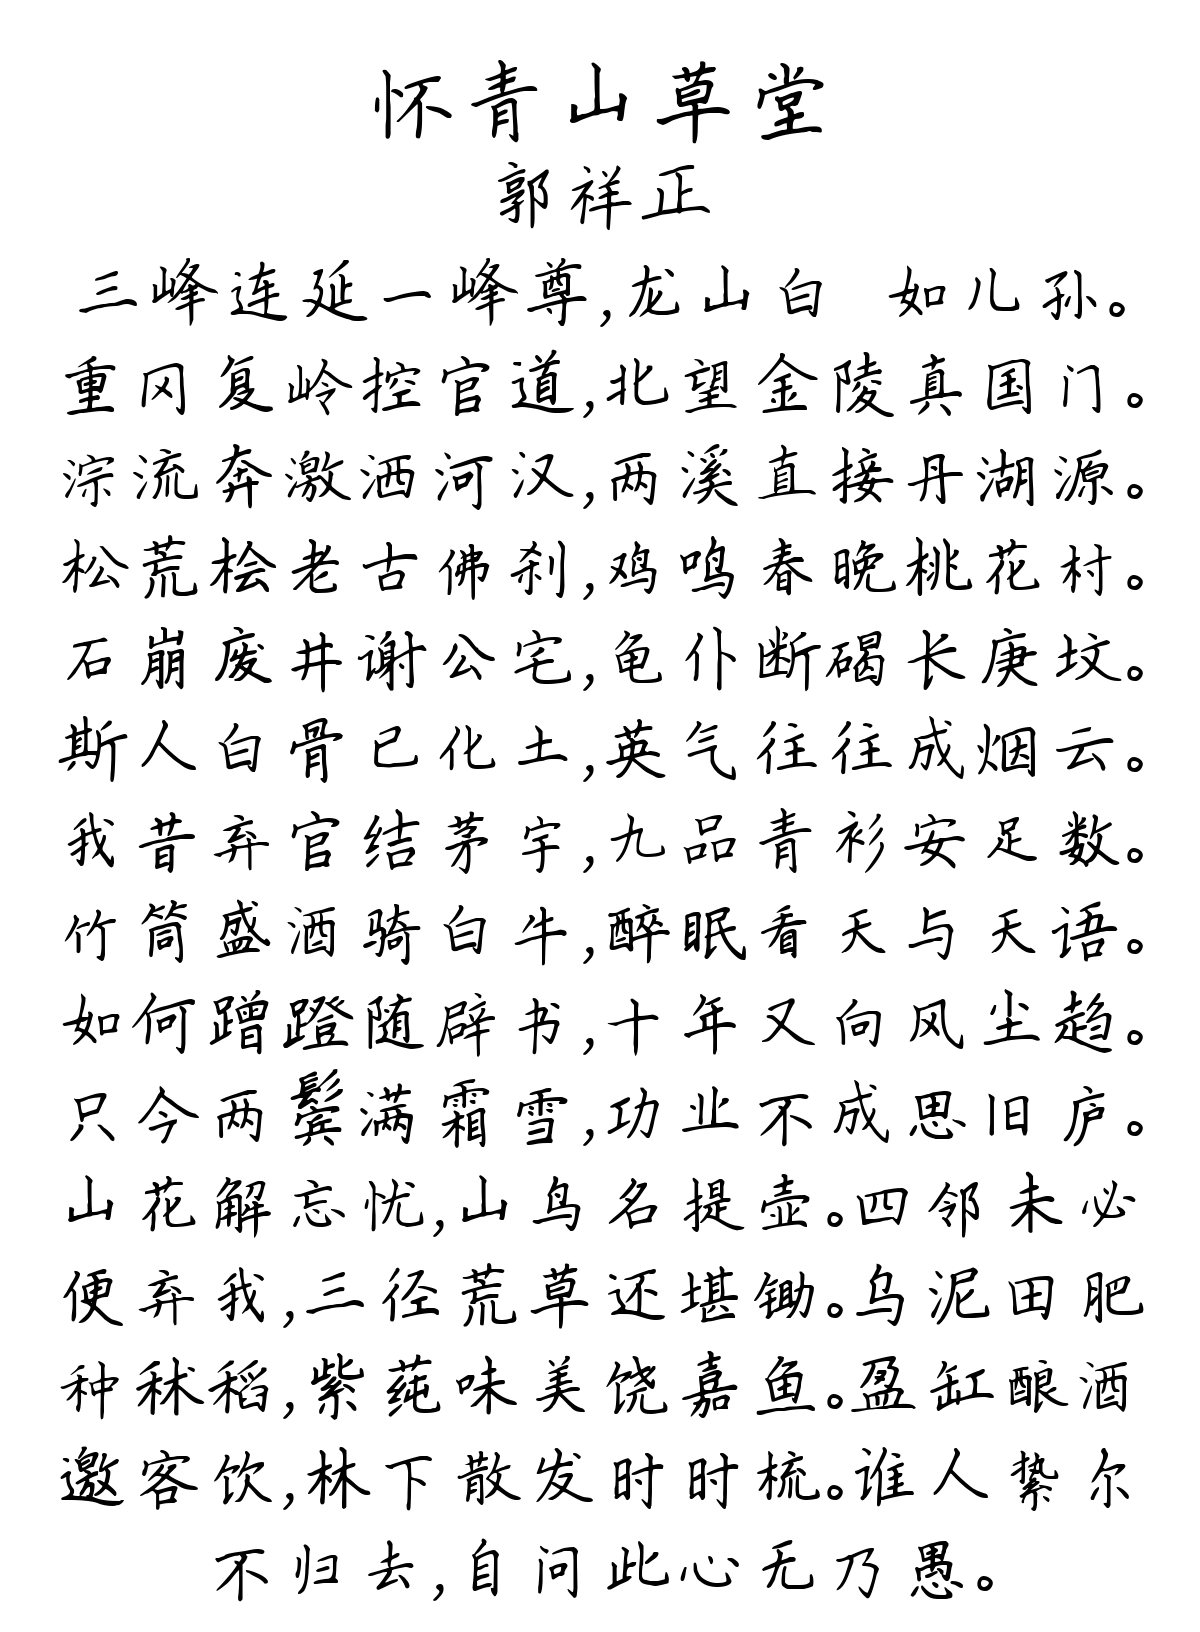 怀青山草堂
郭祥正
三峰连延一峰尊,龙山白 如儿孙。
重冈复岭控官道,北望金陵真国门。
淙流奔激洒河汉,两溪直接丹湖源。
松荒桧老古佛刹,鸡鸣春晚桃花村。
石崩废井谢公宅,龟仆断碣长庚坟。
斯人白骨已化土,英气往往成烟云。
我昔弃官结茅宇,九品青衫安足数。
竹筒盛酒骑白牛,醉眠看天与天语。
如何蹭蹬随辟书,十年又向风尘趋。
只今两鬓满霜雪,功业不成思旧庐。
山花解忘忧,山鸟名提壶。四邻未必
便弃我,三径荒草还堪锄。乌泥田肥
种秫稻,紫莼味美饶嘉鱼。盈缸酿酒
邀客饮,林下散发时时梳。谁人絷尔
不归去,自问此心无乃愚。